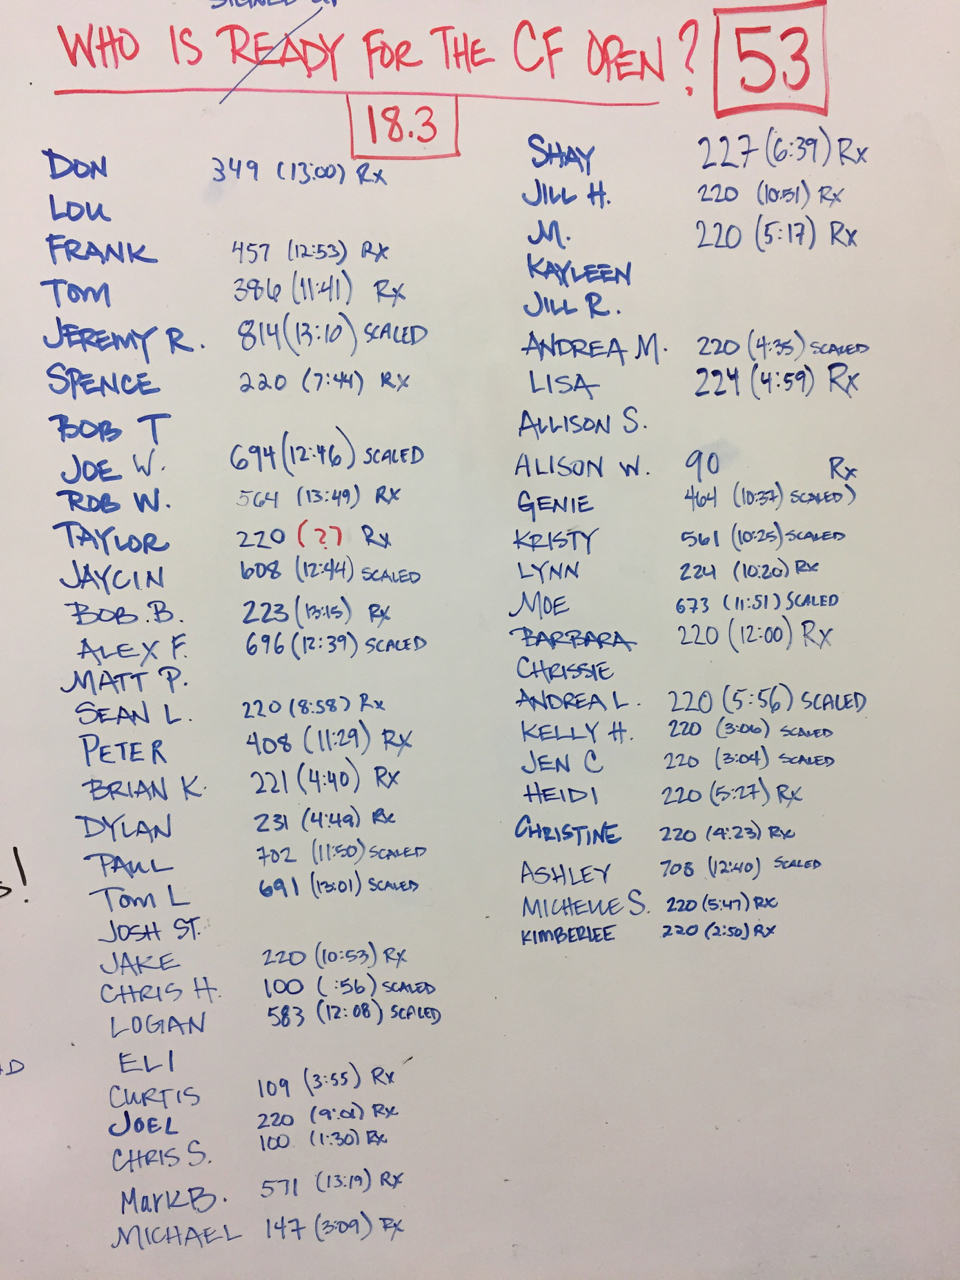 SIGNED UP
WHO IS READY FOR THE CF OPEN? 53
18.3
DON 349 (13:00) Rx
LOU
FRANK 457 (12:53) Rx
TOM 386 (11:41) Rx
JEREMY R. 814 (13:10) SCALED
SPENCE 220 (7:44) Rx
BOB T
JOE W. 694 (12:46) SCALED
ROB W. 564 (13:49) Rx
TAYLOR 220 (?) Rx
JAYCIN 608 (12:44) SCALED
BOB.B. 223 (13:15) Rx
ALEX F. 696 (12:39) SCALED
MATT P.
SEAN L. 220 (8:58) Rx
PETER 408 (11:29) RX
BRIAN K. 221 (4:40) Rx
DYLAN 231 (4:49) Rx
PAUL 702 (11:50) SCALED
TOM L 691 (13:01) SCALED
JOSH ST.
JAKE 220 (10:53) Rx
CHRIS H. 100 ( :56) SCALED
LOGAN 583 (12:08) SCALED
ELI
CURTIS 109 (3:55) Rx
JOEL 220 (9:01) Rx
CHRIS S. 100 (1:30) Rx
MarK B. 571 (13:19) Rx
MICHAEL 147 (3:09) Rx
SHAY 227 (6:39) Rx
JILL H. 220 (10:51) Rx
M. 220 (5:17) Rx
KAYLEEN
JILL R.
ANDREA M. 220 (4:35) SCALED
LISA 224 (4:59) Rx
ALLISON S.
ALISON W. 90 Rx
GENIE 464 (10:37) SCALED)
KRISTY 561 (10:25) SCALED
LYNN 224 (10:20) Rx
MOE 673 (11:51) SCALED
BARBARA 220 (12:00) Rx
CHRISSIE
ANDREA L. 220 (5:56) SCALED
KELLY H. 220 (3:06) SCALED
JEN C 220 (3:04) SCALED
HEIDI 220 (5:27) Rx
CHRISTINE 220 (4:23) Rx
ASHLEY 708 (12:40) SCALED
MICHELLE S. 220 (5:47) Rx
KIMBERLEE 220 (2:50) Rx